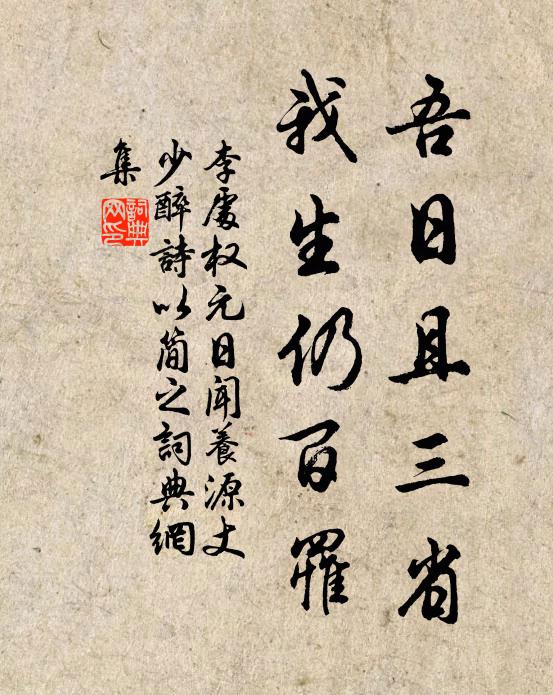 吾日且三省
我生仍百罹
李處权元日闻養源丈
少醉詩以简之詞典網
集
詞典
网印